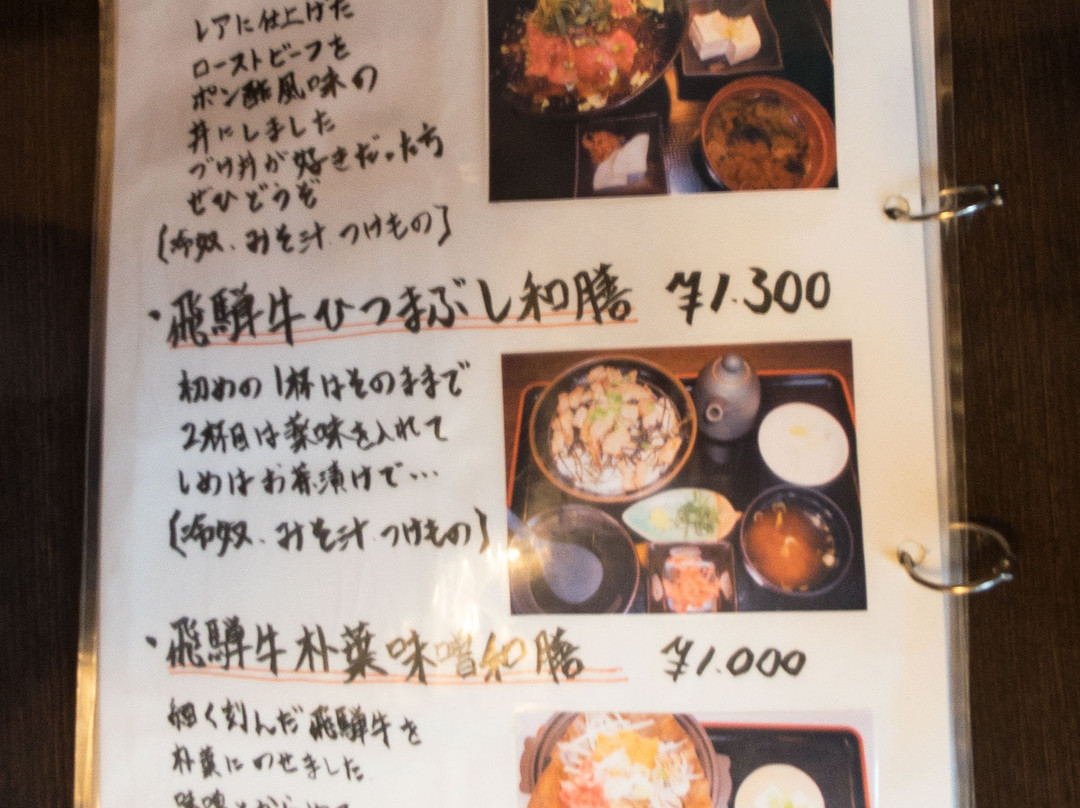 レアに仕上げた
ローストビーフを
ポン酢風味の
丼にしました
づけ丼が好きだった方
ぜひどうぞ
(冷奴、みそ汁、つけもの)
・飛騨牛ひつまぶし和膳 ¥1.300
初めの1杯はそのままで
2杯目は薬味を入れて
しめはお茶漬けで…
(冷奴、みそ汁、つけもの)
・飛騨牛朴葉味噌和膳 ¥1.000
細く刻んだ飛騨牛を
朴葉にのせました